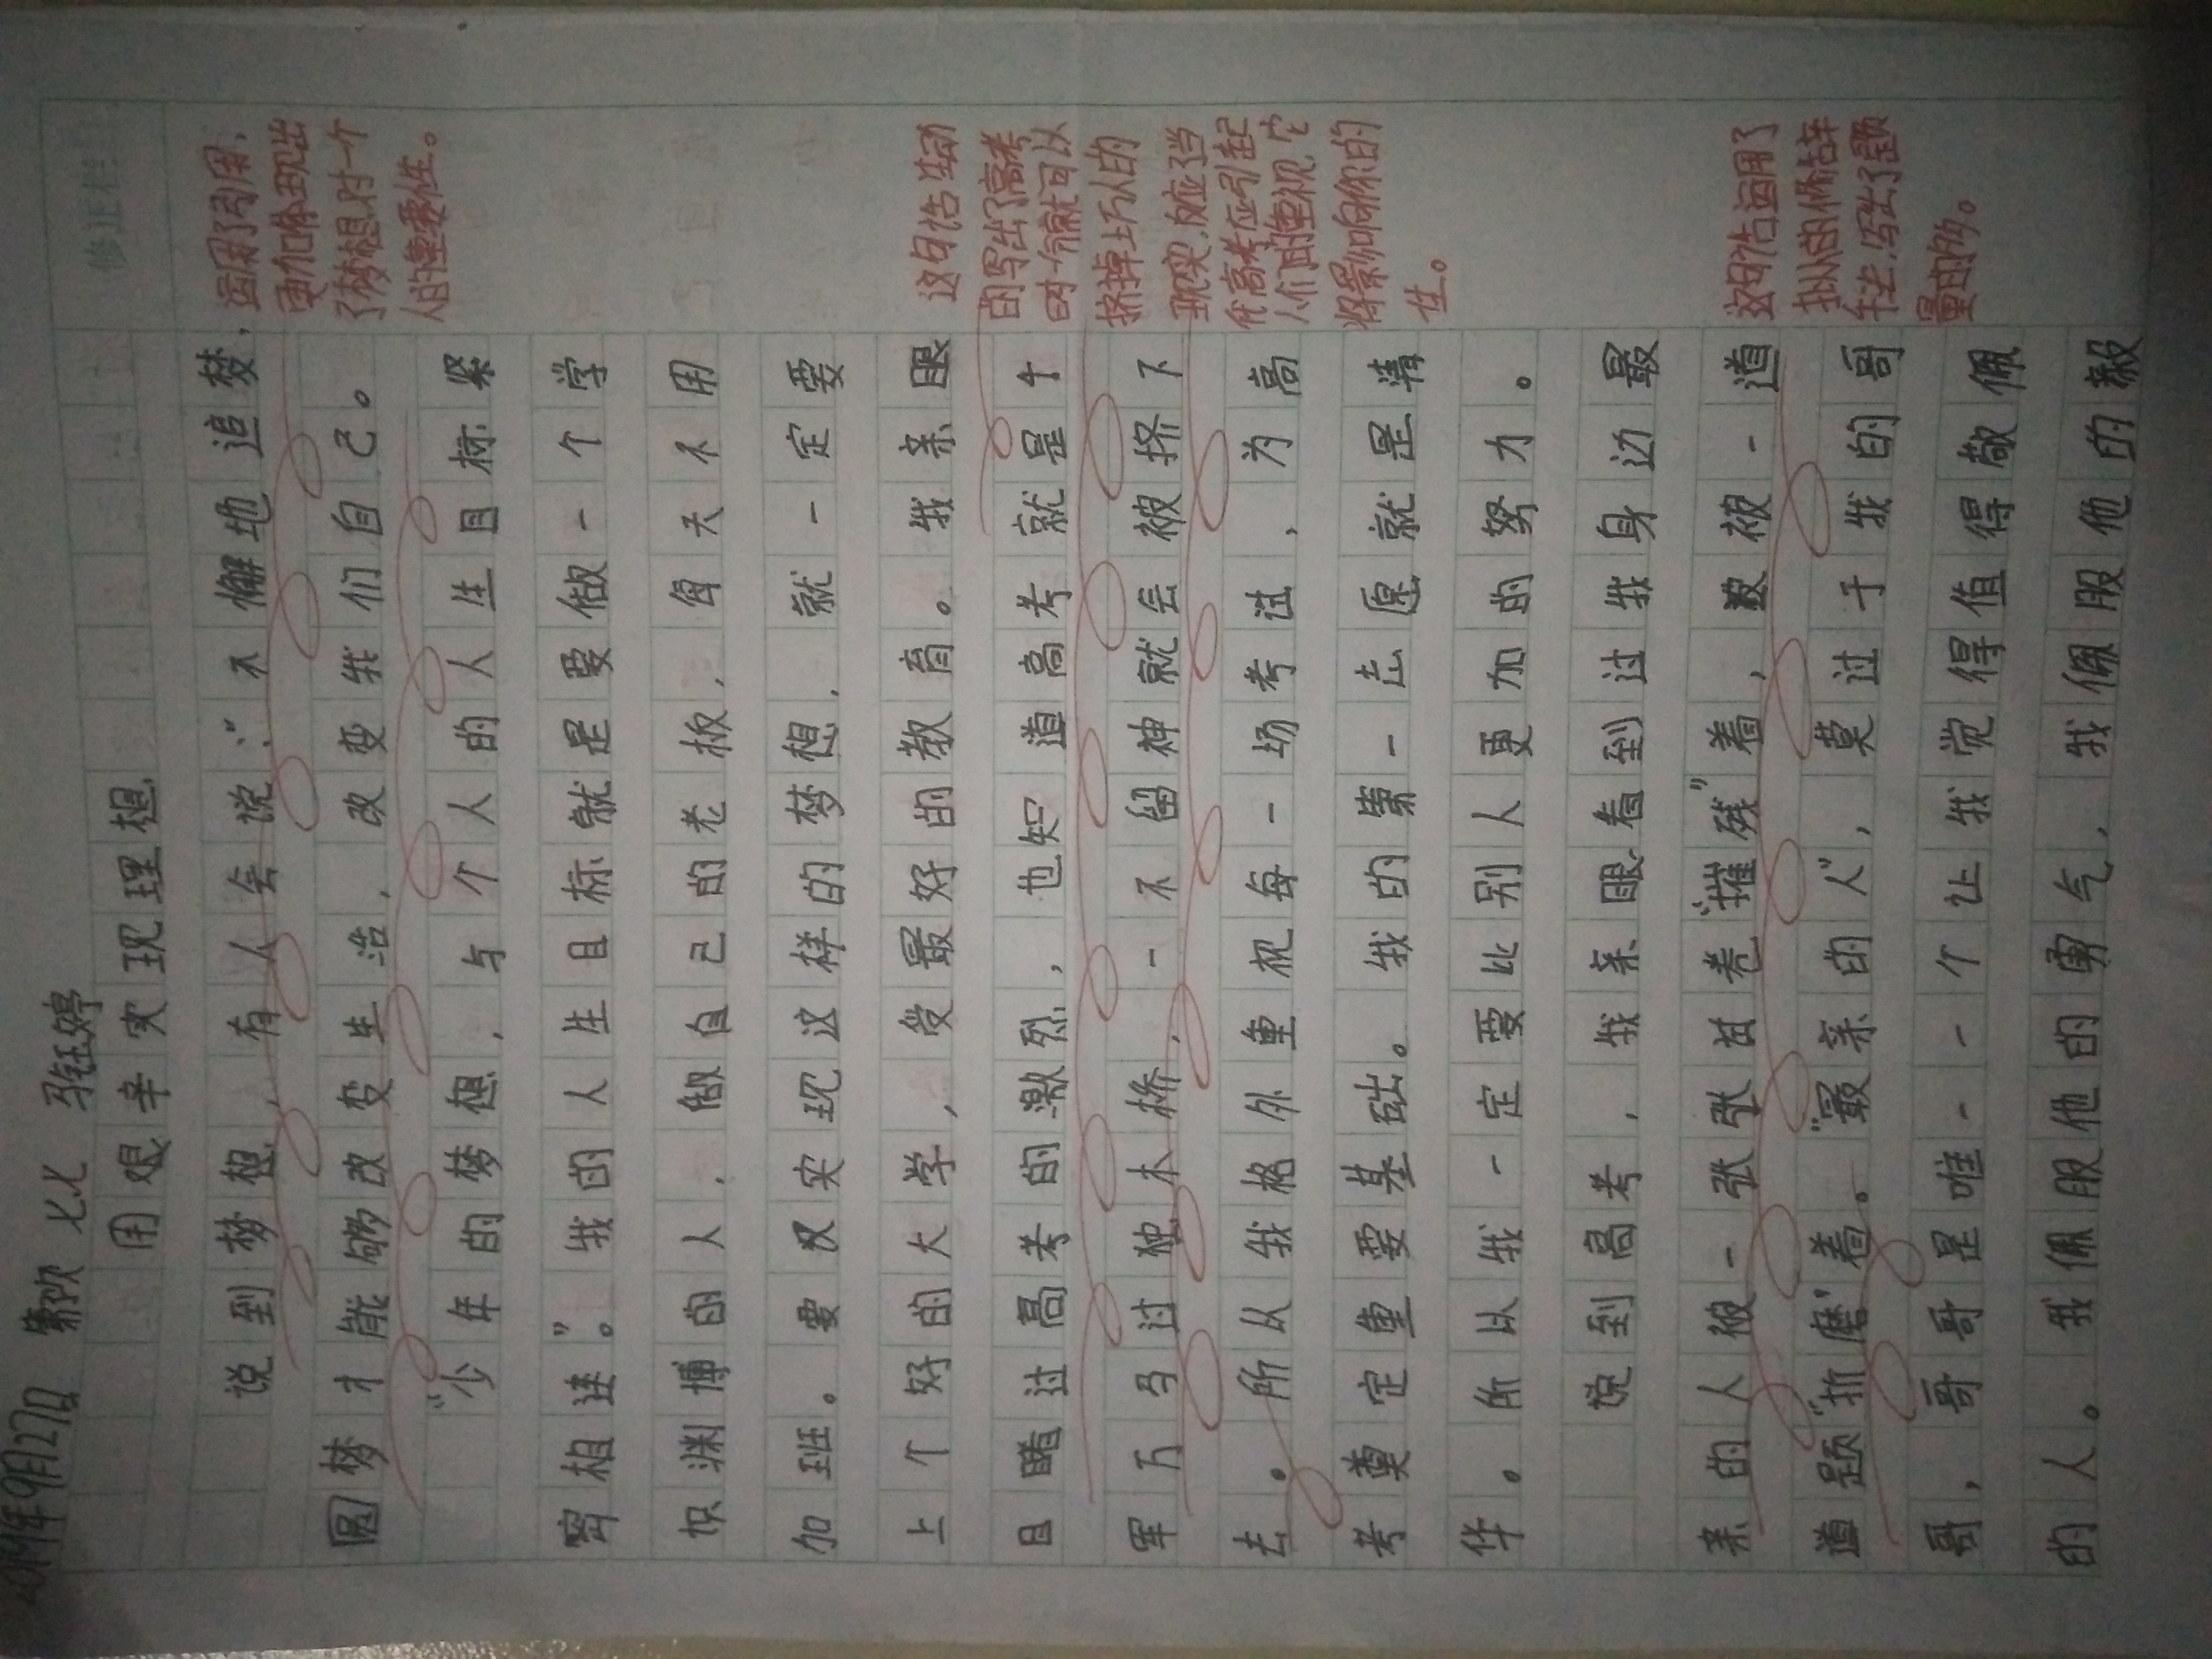 2019年9月27日 綦欢 七七 马钰婷
用艰辛实现理想
修正栏
说到梦想,有人会说:"不懈地追梦,
圆梦才能够改变生活,改变我们自己。
"少年的梦想,与个人的人生目标紧
密相连"。我的人生目标就是要做一个学
识渊博的人,做自己的老板,每天不用
加班。要想实现这样的梦想,就一定要
上个好的大学,受最好的教育。我亲眼
目睹过高考的激烈,也知道高考就是千
军万马过独木桥,一不留神就会被挤下
去。所以我格外重视每一场考试,为高
考奠定重要基础。我的第一志愿就是清
华。所以我一定要比别人更加的努力。
说到高考,我亲眼看到过我身边最
亲的人被一张张试卷"摧残"着,被一道
道题"折磨"着。"最亲的人",莫过于我的哥
哥,哥哥是唯一一个让我觉得值得敬佩
的人。我佩服他的勇气,我佩服他的毅
运用了引用,
更加体现出
了梦想对一个
人的重要性。
这句话生动
的写出了高考
时一分就可以
挤掉上万人的
现实,反应了当
代高考应引起
人们的重视,它
将影响你的
一生。
这句话运用了
拟人的修辞
手法,写出了题
量的多。